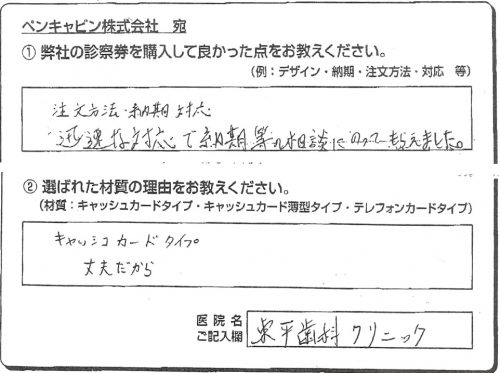 ペンキャビン株式会社 宛
① 弊社の診察券を購入して良かった点をお教えください。
(例：デザイン・納期・注文方法・対応 等)
注文方法・納期 対応
迅速な対応で納期等の相談にのってもらえました。
② 選ばれた材質の理由をお教えください。
(材質：キャッシュカードタイプ・キャッシュカード薄型タイプ・テレフォンカードタイプ)
キャッシュカードタイプ
丈夫だから
医院名
ご記入欄
東平歯科クリニック